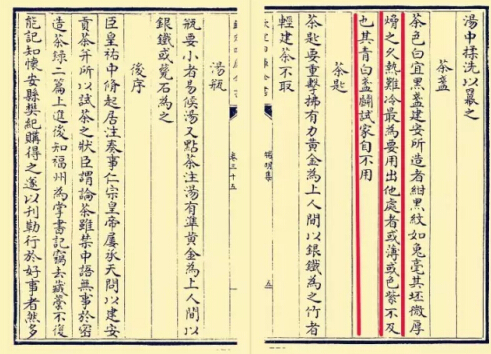 湯中揉洗以羃之
茶盞
茶色白宜黑盞建安所造者紺黑紋如兔毫其坯微厚
熁之久熱難冷最為要用出他處者或薄或色紫不及
也其青白盞鬬試家自不用
茶匙
茶匙要重擊拂有力黃金為上人間以銀鐵為之竹者
輕建茶不取
端明集
卷三十五
湯瓶
瓶要小者易候湯又點茶注湯有準黃金為上人間以
銀鐵或甆石為之
後序
臣皇祐中脩起居注奏事仁宗皇帝屢承天問以建安
貢茶并所以試茶之狀臣謂論茶雖禁中語無事於密
造茶録二篇上進後知福州為掌書記竊去藏藳不復
能記知懷安縣樊紀購得之遂以刊勒行於好事者然多